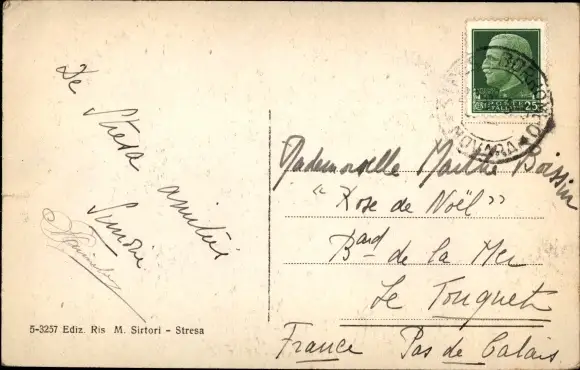 De Stresa amitiés
Simone
5-3257 Ediz. Ris M. Sirtori - Stresa
POSTE ITALIANE
CENT. 25
NOVARA
Mademoiselle Boissin
“Rose de Noël”
Bard de la Mer
Le Touquet
France Pas de Calais